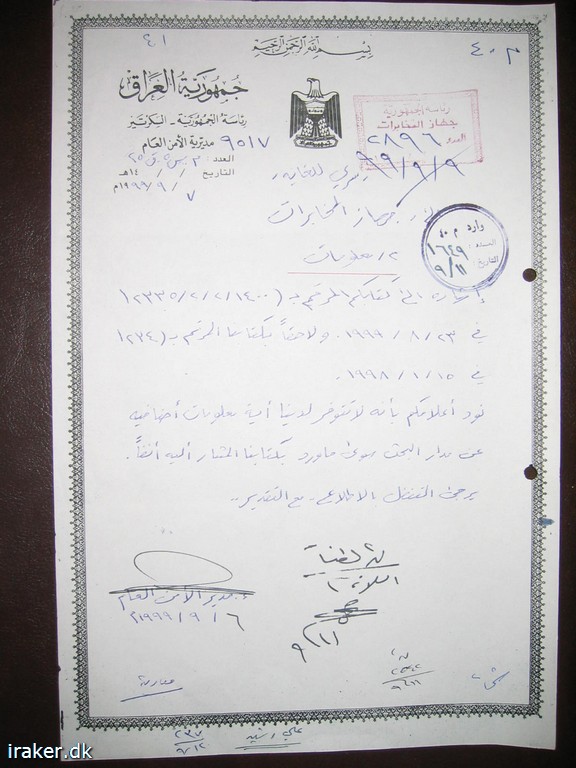 ٤١
بسم الله الرحمن الرحيم
م ٤٠
جمهورية العراق
رئاسة الجمهورية - السكرتير
مديرية الأمن العام
٩٥١٧
العدد :
التاريخ : / / ١٤هـ
٧ / ٩ / ١٩٩٩م
رئاسة الجمهورية
جهاز المخابرات
العدد ٢٨٩٦
٩/٩/٩
سري للغاية
جهاز المخابرات
وارد م ٤٠
العدد : ١٦٤٩
التاريخ : ٩/١١
م/ معلومات
إشارة الى كتابكم المرقم بـ (١٢٣٣٥/٢/٢/١٤٠٠)
في ٢٣ / ٨ / ١٩٩٩ . ولاحقاً بكتابنا المرقم بـ (١٢٣٤)
في ١٥ / ١ / ١٩٩٨ .
نود أعلامكم بأنه لا تتوفر لدينا أية معلومات أضافيه
عن مدار البحث سوى ماورد بكتابنا المشار أليه أنفاً .
يرجى التفضل بالاطلاع .. مع التقدير ..
مدير الأمن العام
٦ / ٩ / ١٩٩٩م
٩/١١
٩/١١
علي رشيد
٢٣٧
٩/١٢
iraker.dk